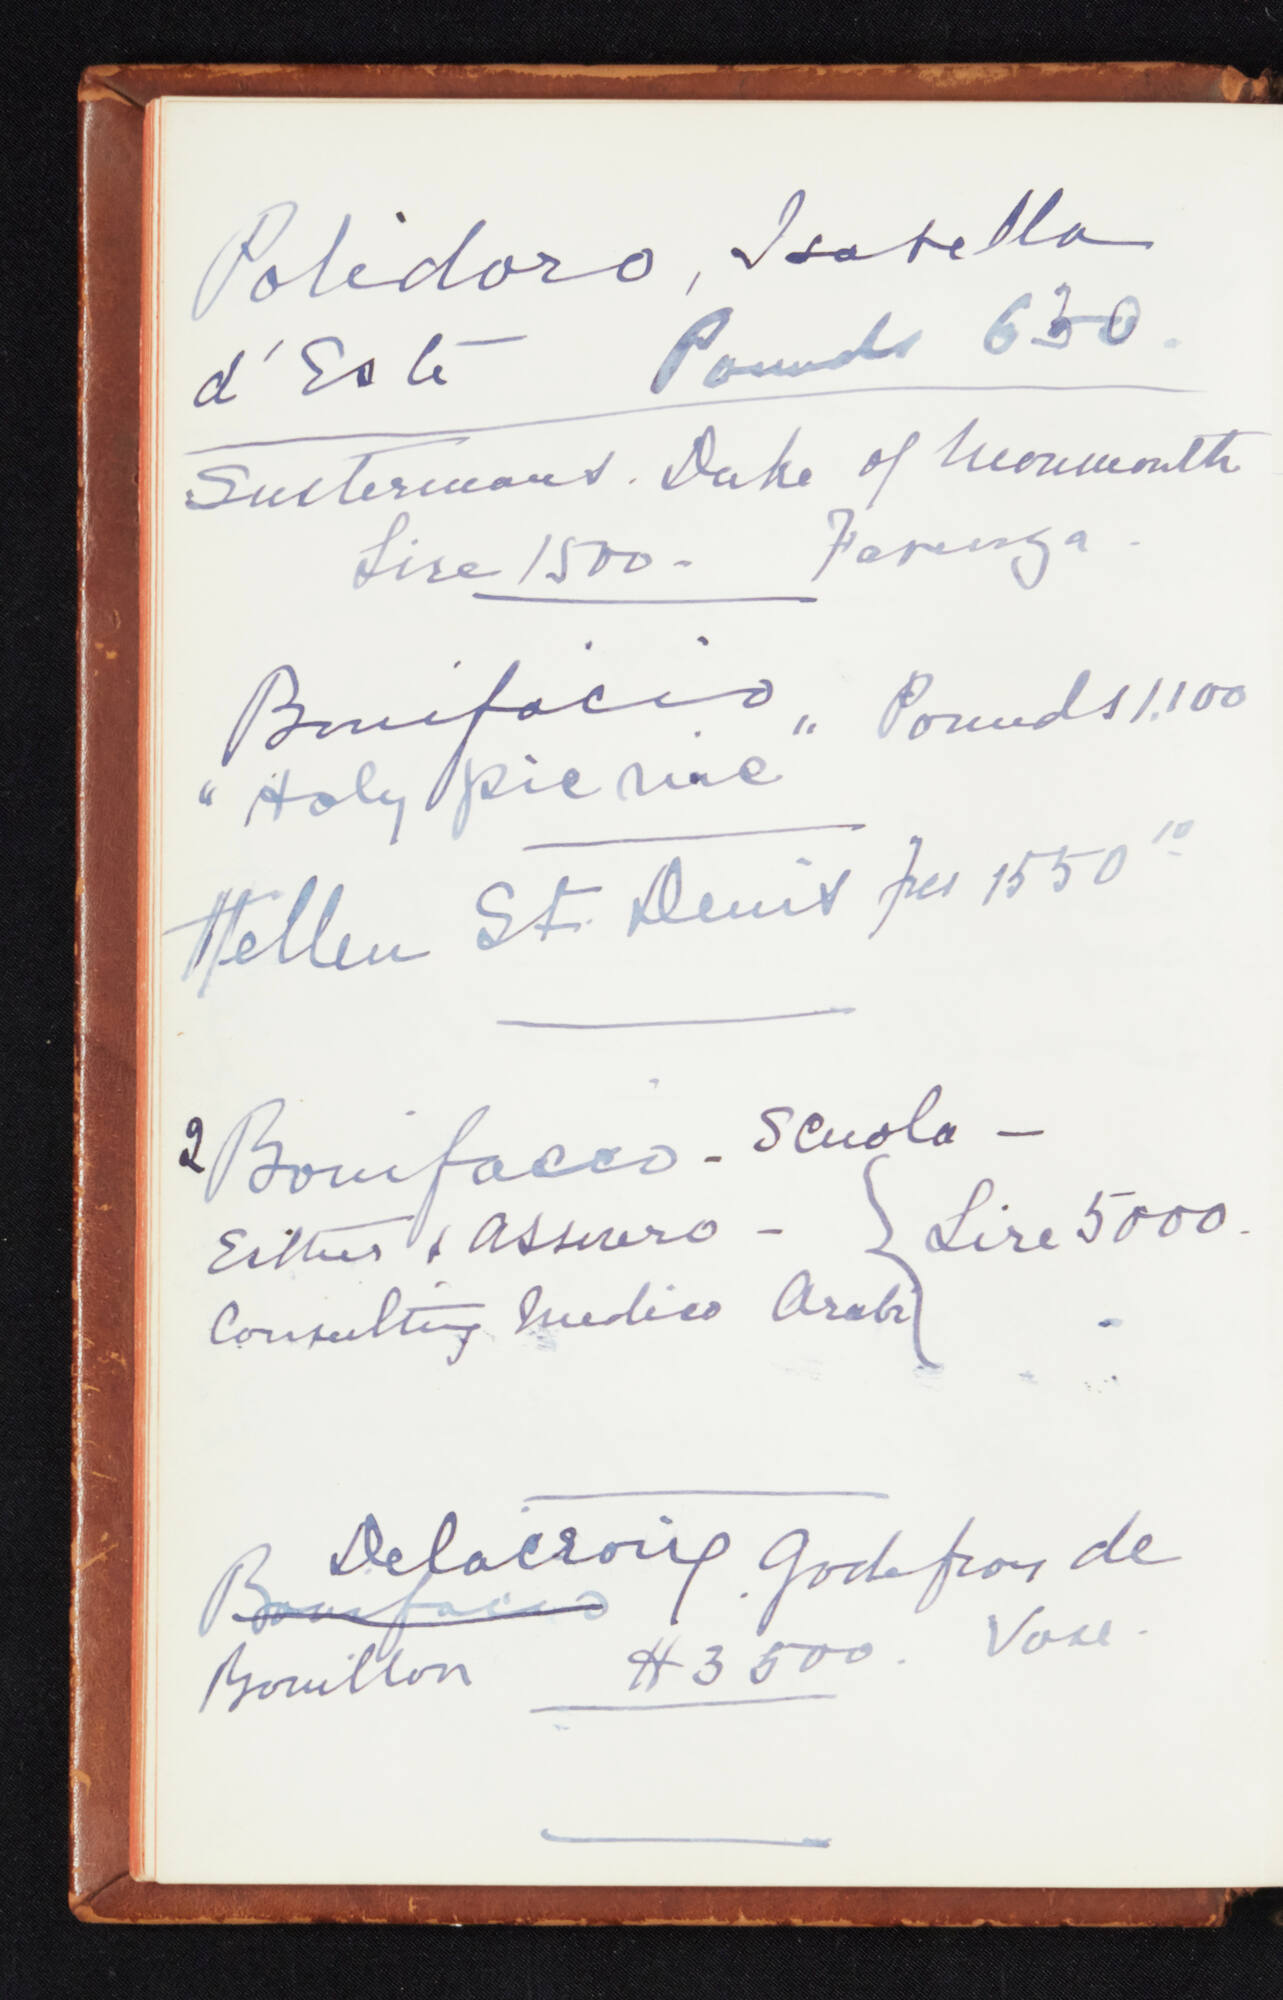 Polidoro, Isabella
d'Este Pounds 630.
Sustermans. Duke of Monmouth
Lire 1500. Farenza.
Bonifacio Pounds 1.100
"Holy picnic"
Hellen St. Denis frs 1550 10
2 Bonifacio - Scuola -
Esther & Assuero -
Lire 5000.
Consulting Medico Arabi
Delacroix Godefroy de
Bonifacio
Bouillon # 3500. Vose.